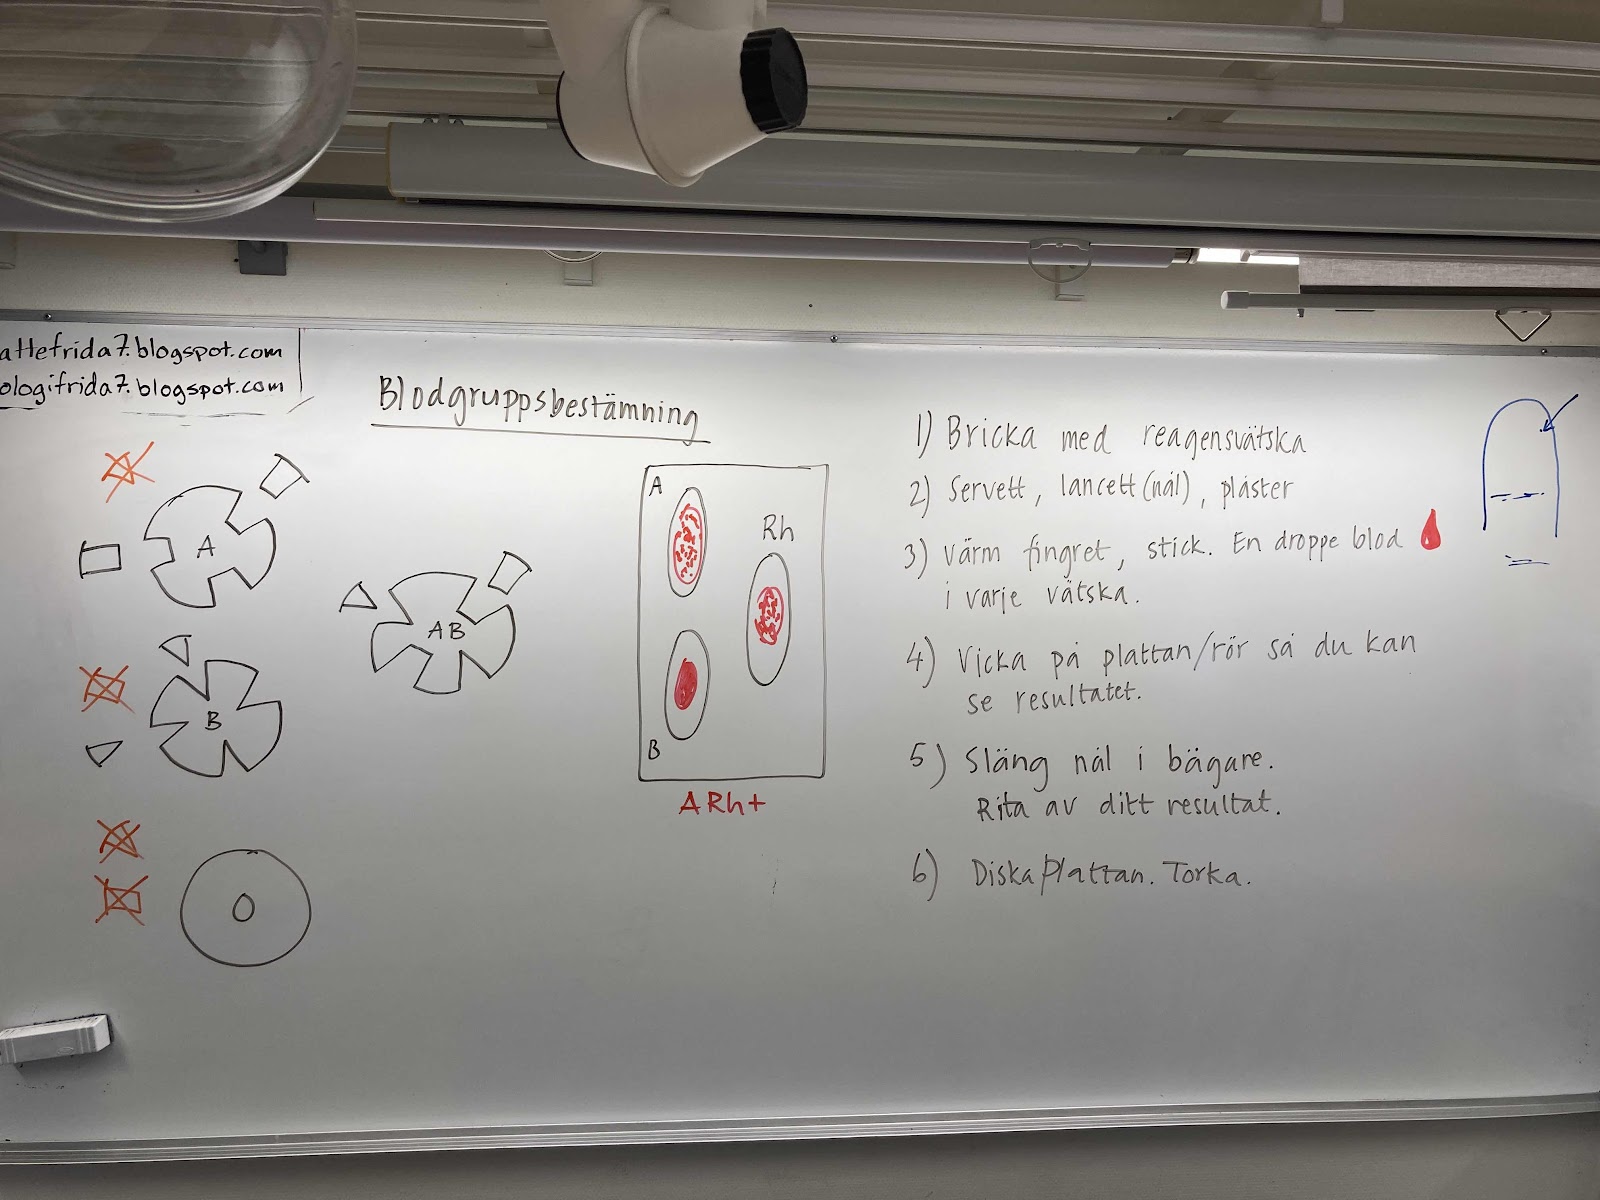 attefrida7.blogspot.com
ologifrida7.blogspot.com
Blodgruppsbestämning
A
AB
B
O
A
Rh
B
ARh+
1) Bricka med reagensvätska
2) Servett, lancett (nål), plåster
3) Värm fingret, stick. En droppe blod
i varje vätska.
4) Vicka på plattan/rör så du kan
se resultatet.
5) Släng nål i bägare.
Rita av ditt resultat.
6) Diska plattan. Torka.